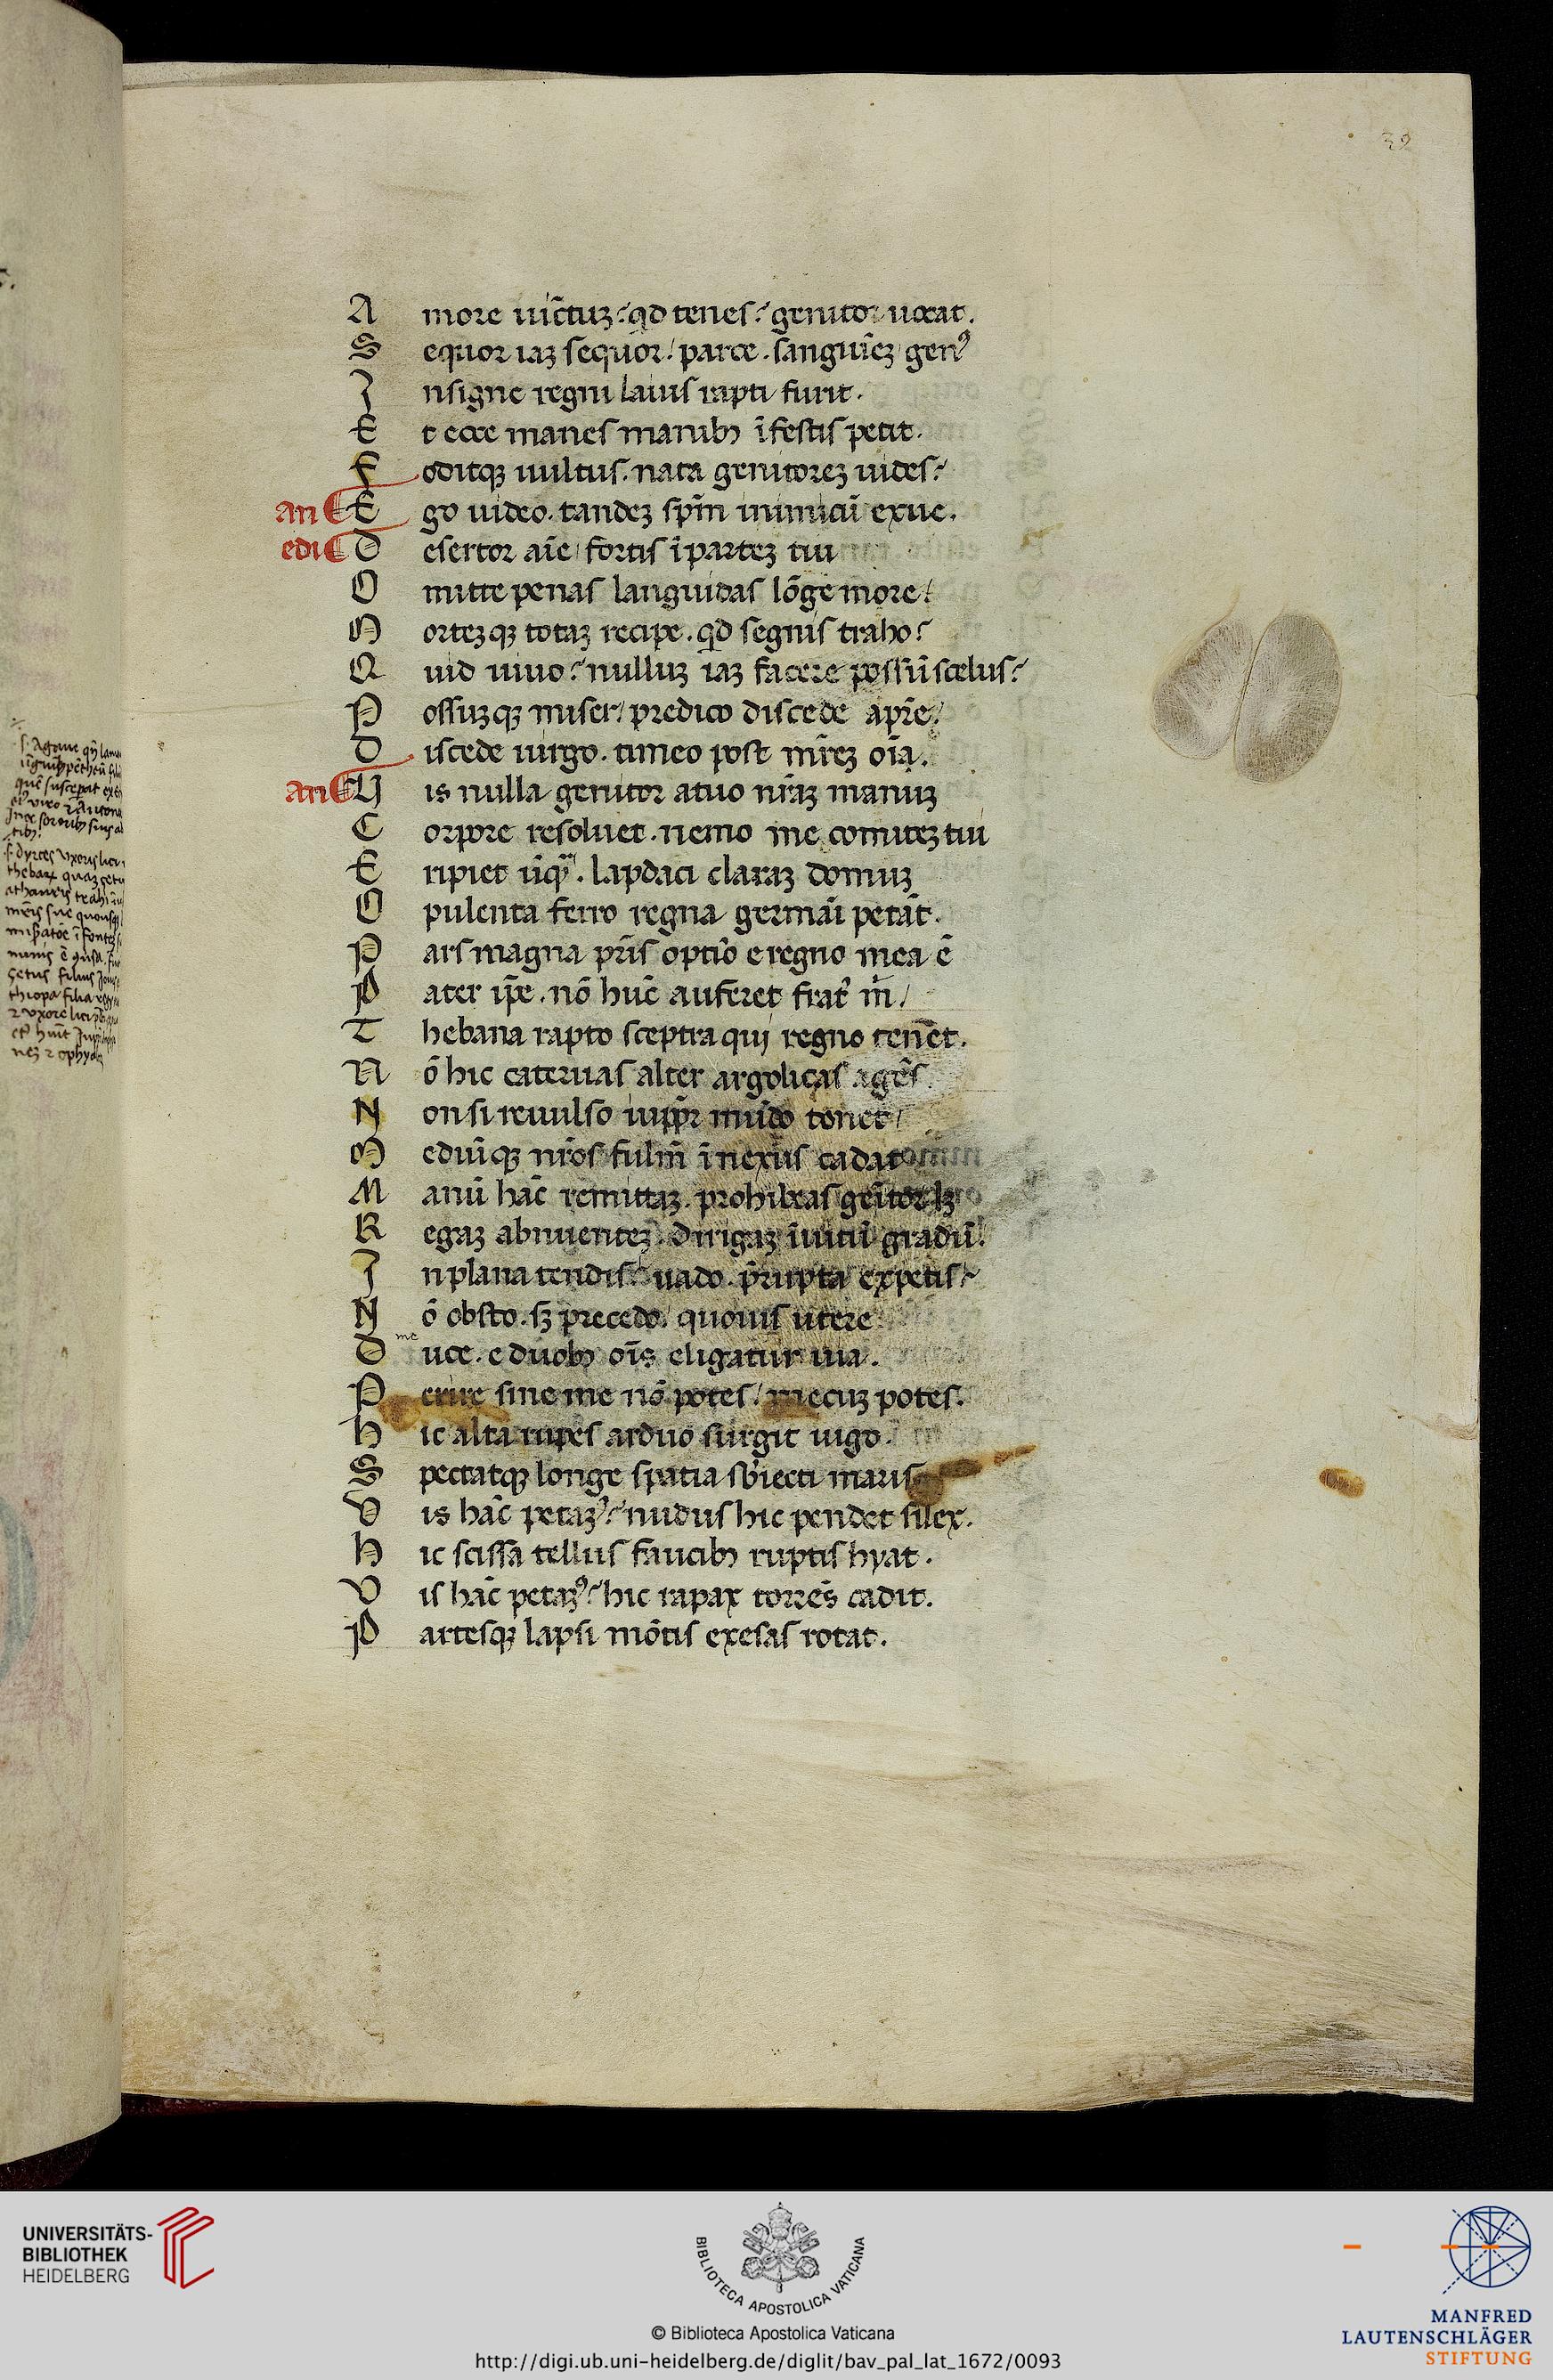 39
A more uictuȝ? qd tenes? genitor uocat.
S equor iaȝ sequor/ parce. sanguīeȝ genꝰ
I nsigne regni laius rapti furit.
E t ecce manes manibȝ īfestis petit.
F oditqȝ uultus. nata genitoreȝ uides?
an E go uideo. tandeȝ spm̄ inimicū exue.
edi D esertor aīe/ fortis ī parteȝ tui
O mitte penas languidas lōge more/
M orteȝqȝ totaȝ recipe. qd segnis traho?
Q uid uiuo? nulluȝ iaȝ facere possū scelus?
P ossuȝqȝ miser/ predico discede a prīe/
D iscede uirgo. timeo post mr̄eȝ oīa.
an U is nulla genitor a tuo nr̄aȝ manuȝ
C orpore resoluet. nemo me comiteȝ tui
E ripiet ūqᵃ. lapdaci claraȝ domuȝ
O pulenta ferro regna germāi petāt.
P ars magna pr̄is optīo e regno mea ē
P ater ip̄e. nō hūc auferet frat̉ m̄/
T hebana rapto sceptra qui regno tenēt.
N ō hic cateruas alter argolicas agēs.
N on si reuulso iupp̄r mūdo tonet/
M ediūqȝ nr̄os fulm̄ ī nexus cadat
M anū hāc remittaȝ. prohibeas genitor lȝ
R egaȝ abnuenteȝ. dirigaȝ īuitū gradū.
I n plana tendis? uado. p̄rupta expetis?
N ō obsto. sȝ precedo. quouis utere
D uce me. e duobȝ oīs eligatur uia.
P erire sine me nō potes/ mecuȝ potes.
H ic alta rupes arduo surgit iugo.
S pectatqȝ longe spatia sb̄iecti maris
V is hāc petaȝꝰ? nudus hic pendet silex.
H ic scissa tellus faucibȝ ruptis hyat.
V is hāc petaȝꝰ? hic rapax torrēs cadit.
P artesqȝ lapsi mōtis exesas rotat.
UNIVERSITÄTS-
BIBLIOTHEK
HEIDELBERG
BIBLIOTECA APOSTOLICA VATICANA
© Biblioteca Apostolica Vaticana
http://digi.ub.uni-heidelberg.de/diglit/bav_pal_lat_1672/0093
MANFRED
LAUTENSCHLÄGER
STIFTUNG